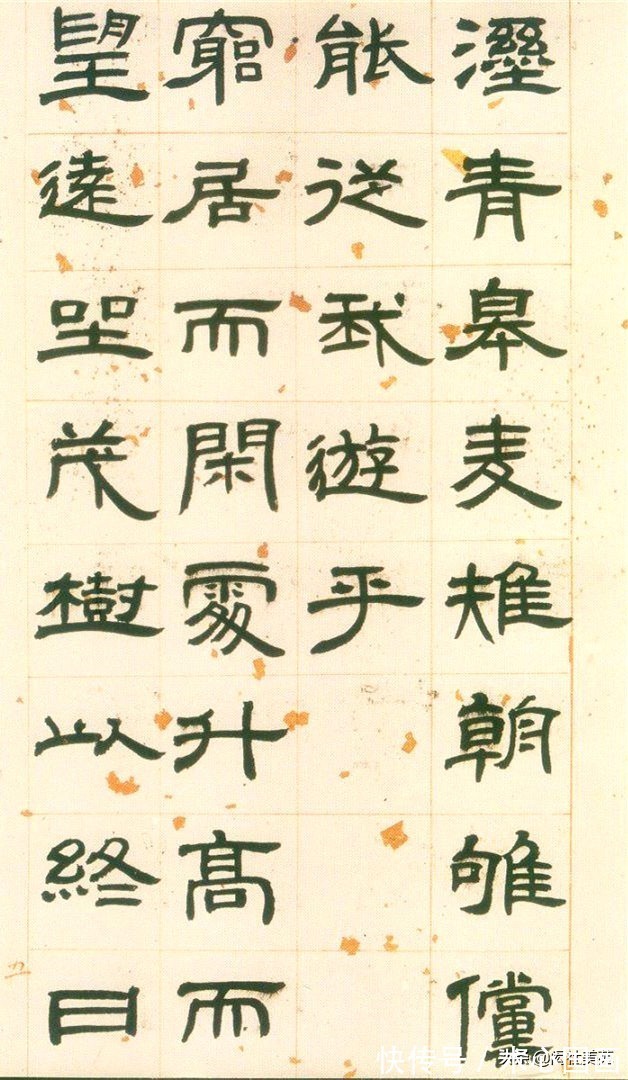 溼青皋麦雉朝雊儻
能從我遊乎
窮居而閑處升高而
望遠坐茂樹以終日
快传号